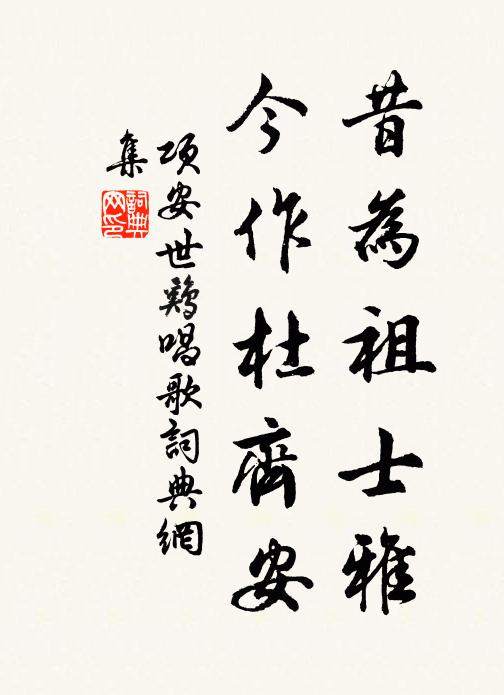 昔為祖士雅
今作杜齊安
項安世鷄唱歌詞典網
集
詞典網印